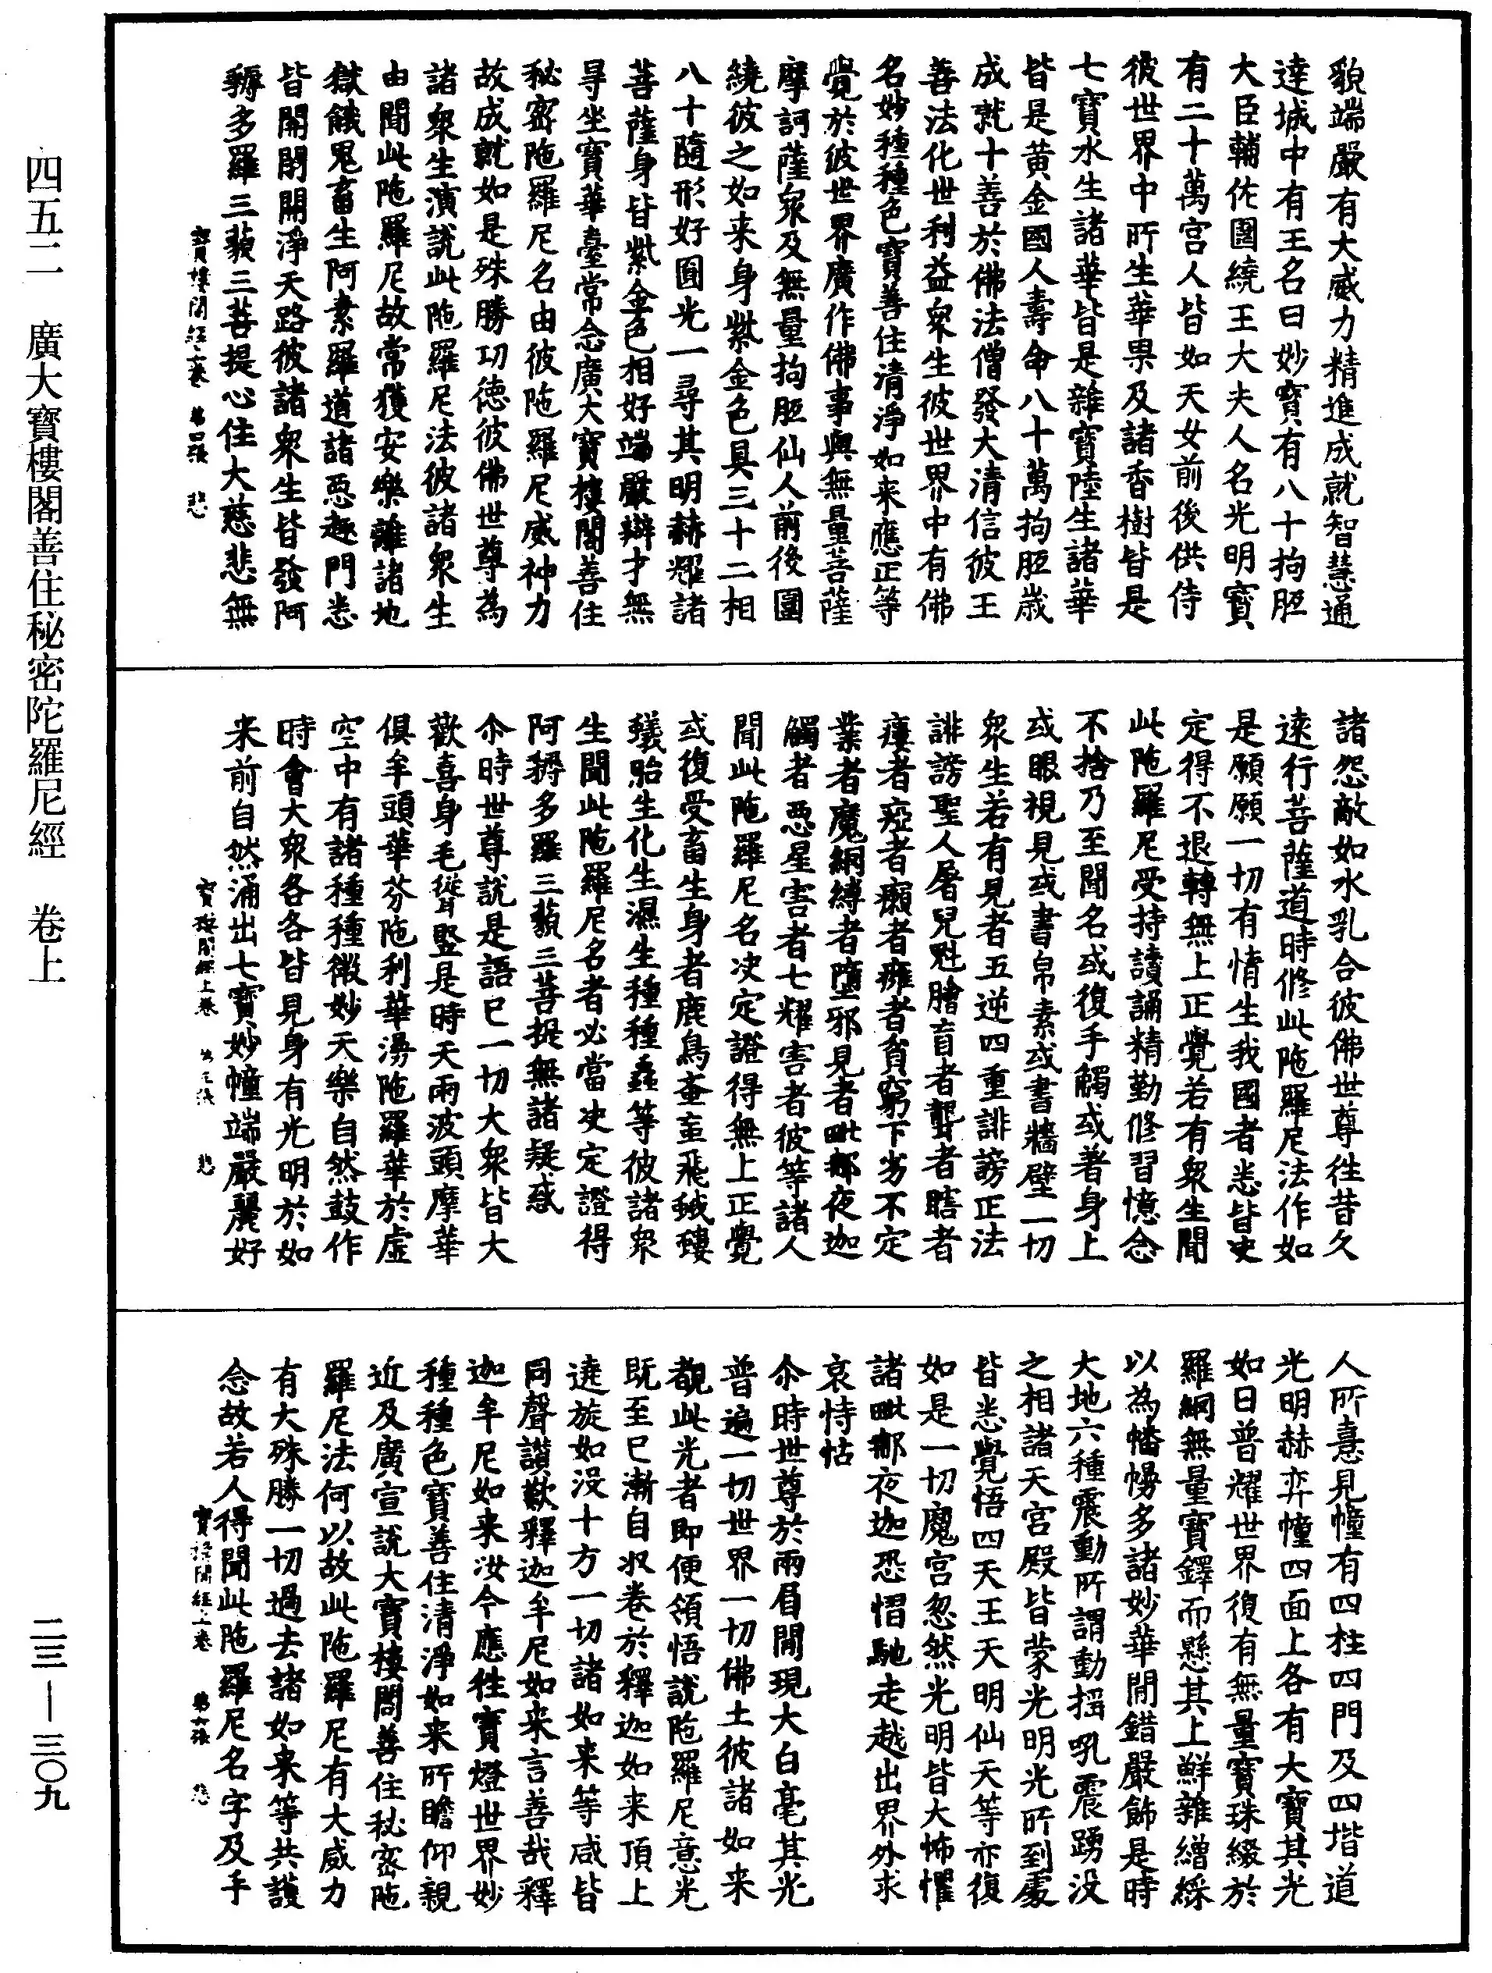 貌端嚴有大威力精進成就智慧通
達城中有王名曰妙寶有八十拘胝
大臣輔佐圍繞王大夫人名光明寶
有二十萬宮人皆如天女前後供侍
彼世界中所生華果及諸香樹皆是
七寶水生諸華皆是雜寶陸生諸華
皆是黃金國人壽命八十萬拘胝歲
成就十善於佛法僧發大清信彼王
善法化世利益衆生彼世界中有佛
名妙種種色寶善住清淨如来應正等
覺於彼世界廣作佛事與無量菩薩
摩訶薩衆及無量拘胝仙人前後圍
繞彼之如来身紫金色具三十二相
八十隨形好圓光一尋其明赫耀諸
菩薩身皆紫金色相好端嚴辯才無
㝵坐寶華臺常念廣大寶樓閣善住
秘密陁羅尼名由彼陁羅尼威神力
故成就如是殊勝功德彼佛世尊為
諸衆生演說此陁羅尼法彼諸衆生
由聞此陁羅尼故常獲安樂離諸地
獄餓鬼畜生阿素羅道諸惡趣門悉
皆關閇開淨天路彼諸衆生皆發阿
耨多羅三藐三菩提心住大慈悲無
寶樓閣經上卷　第四張　悲
諸怨敵如水乳合彼佛世尊往昔久
遠行菩薩道時修此陁羅尼法作如
是願願一切有情生我國者悉皆決
定得不退轉無上正覺若有衆生聞
此陁羅尼受持讀誦精勤修習憶念
不捨乃至聞名或復手觸或著身上
或眼視見或書帛素或書牆壁一切
衆生若有見者五逆四重誹謗正法
誹謗聖人屠兒魁膾盲者聾者瞎者
癭者瘂者癩者癰者貧窮下劣不定
業者魔網縛者墮邪見者毗那夜迦
觸者惡星害者七耀害者彼等諸人
聞此陁羅尼名決定證得無上正覺
或復受畜生身者鹿鳥蚉䖟飛蛾螻
蟻胎生化生濕生種種蟲等彼諸衆
生聞此陁羅尼名者必當決定證得
阿耨多羅三藐三菩提無諸疑惑
尒時世尊說是語已一切大衆皆大
歡喜身毛聳竪是時天雨波頭摩華
俱牟頭華芬陁利華湯陁羅華於虛
空中有諸種種微妙天樂自然鼓作
時會大衆各各皆見身有光明於如
来前自然涌出七寶妙幢端嚴麗好
寶樓閣經上卷　第五張　悲
人所憙見幢有四柱四門及四堦道
光明赫弈幢四面上各有大寶其光
如日普耀世界復有無量寶珠綴於
羅網無量寶鐸而懸其上鮮雜繒綵
以為幡幔多諸妙華閒錯嚴飾是時
大地六種震動所謂動搖吼震踴没
之相諸天宮殿皆蒙光明光所到處
皆悉覺悟四天王天明仙天等亦復
如是一切魔宮忽然光明皆大怖懼
諸毗那夜迦恐慴馳走越出界外求
哀恃怙
尒時世尊於兩眉閒現大白毫其光
普遍一切世界一切佛土彼諸如来
覩此光者即便領悟說陁羅尼意光
既至已漸自収卷於釋迦如来頂上
遶旋如没十方一切諸如来等咸皆
同聲讚歎釋迦牟尼如来言善哉釋
迦牟尼如来汝今應往寶燈世界妙
種種色寶善住清淨如来所瞻仰親
近及廣宣說大寶樓閣善住秘密陁
羅尼法何以故此陁羅尼有大威力
有大殊勝一切過去諸如来等共護
念故若人得聞此陁羅尼名字及手
寶樓閣經上卷　第六張　悲
四五二　廣大寶樓閣善住秘密陀羅尼經　卷上
二三—三〇九